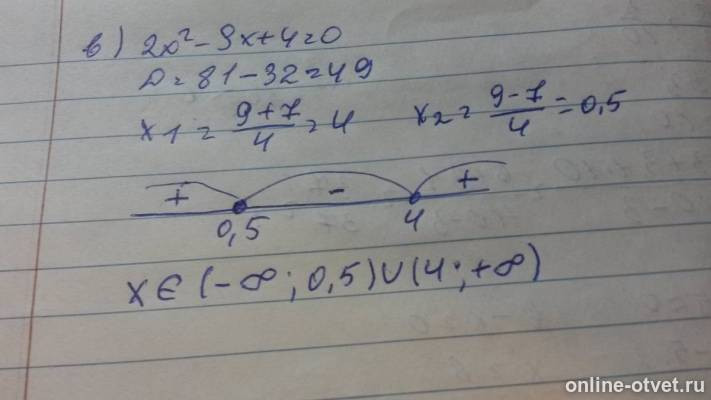 в) 2x² - 9x + 4 = 0
D = 81 - 32 = 49
x1 = (9+7)/4 = 4 x2 = (9-7)/4 = 0,5
+ - +
0,5 4
x ∈ (-∞; 0,5) ∪ (4; +∞)
online-otvet.ru